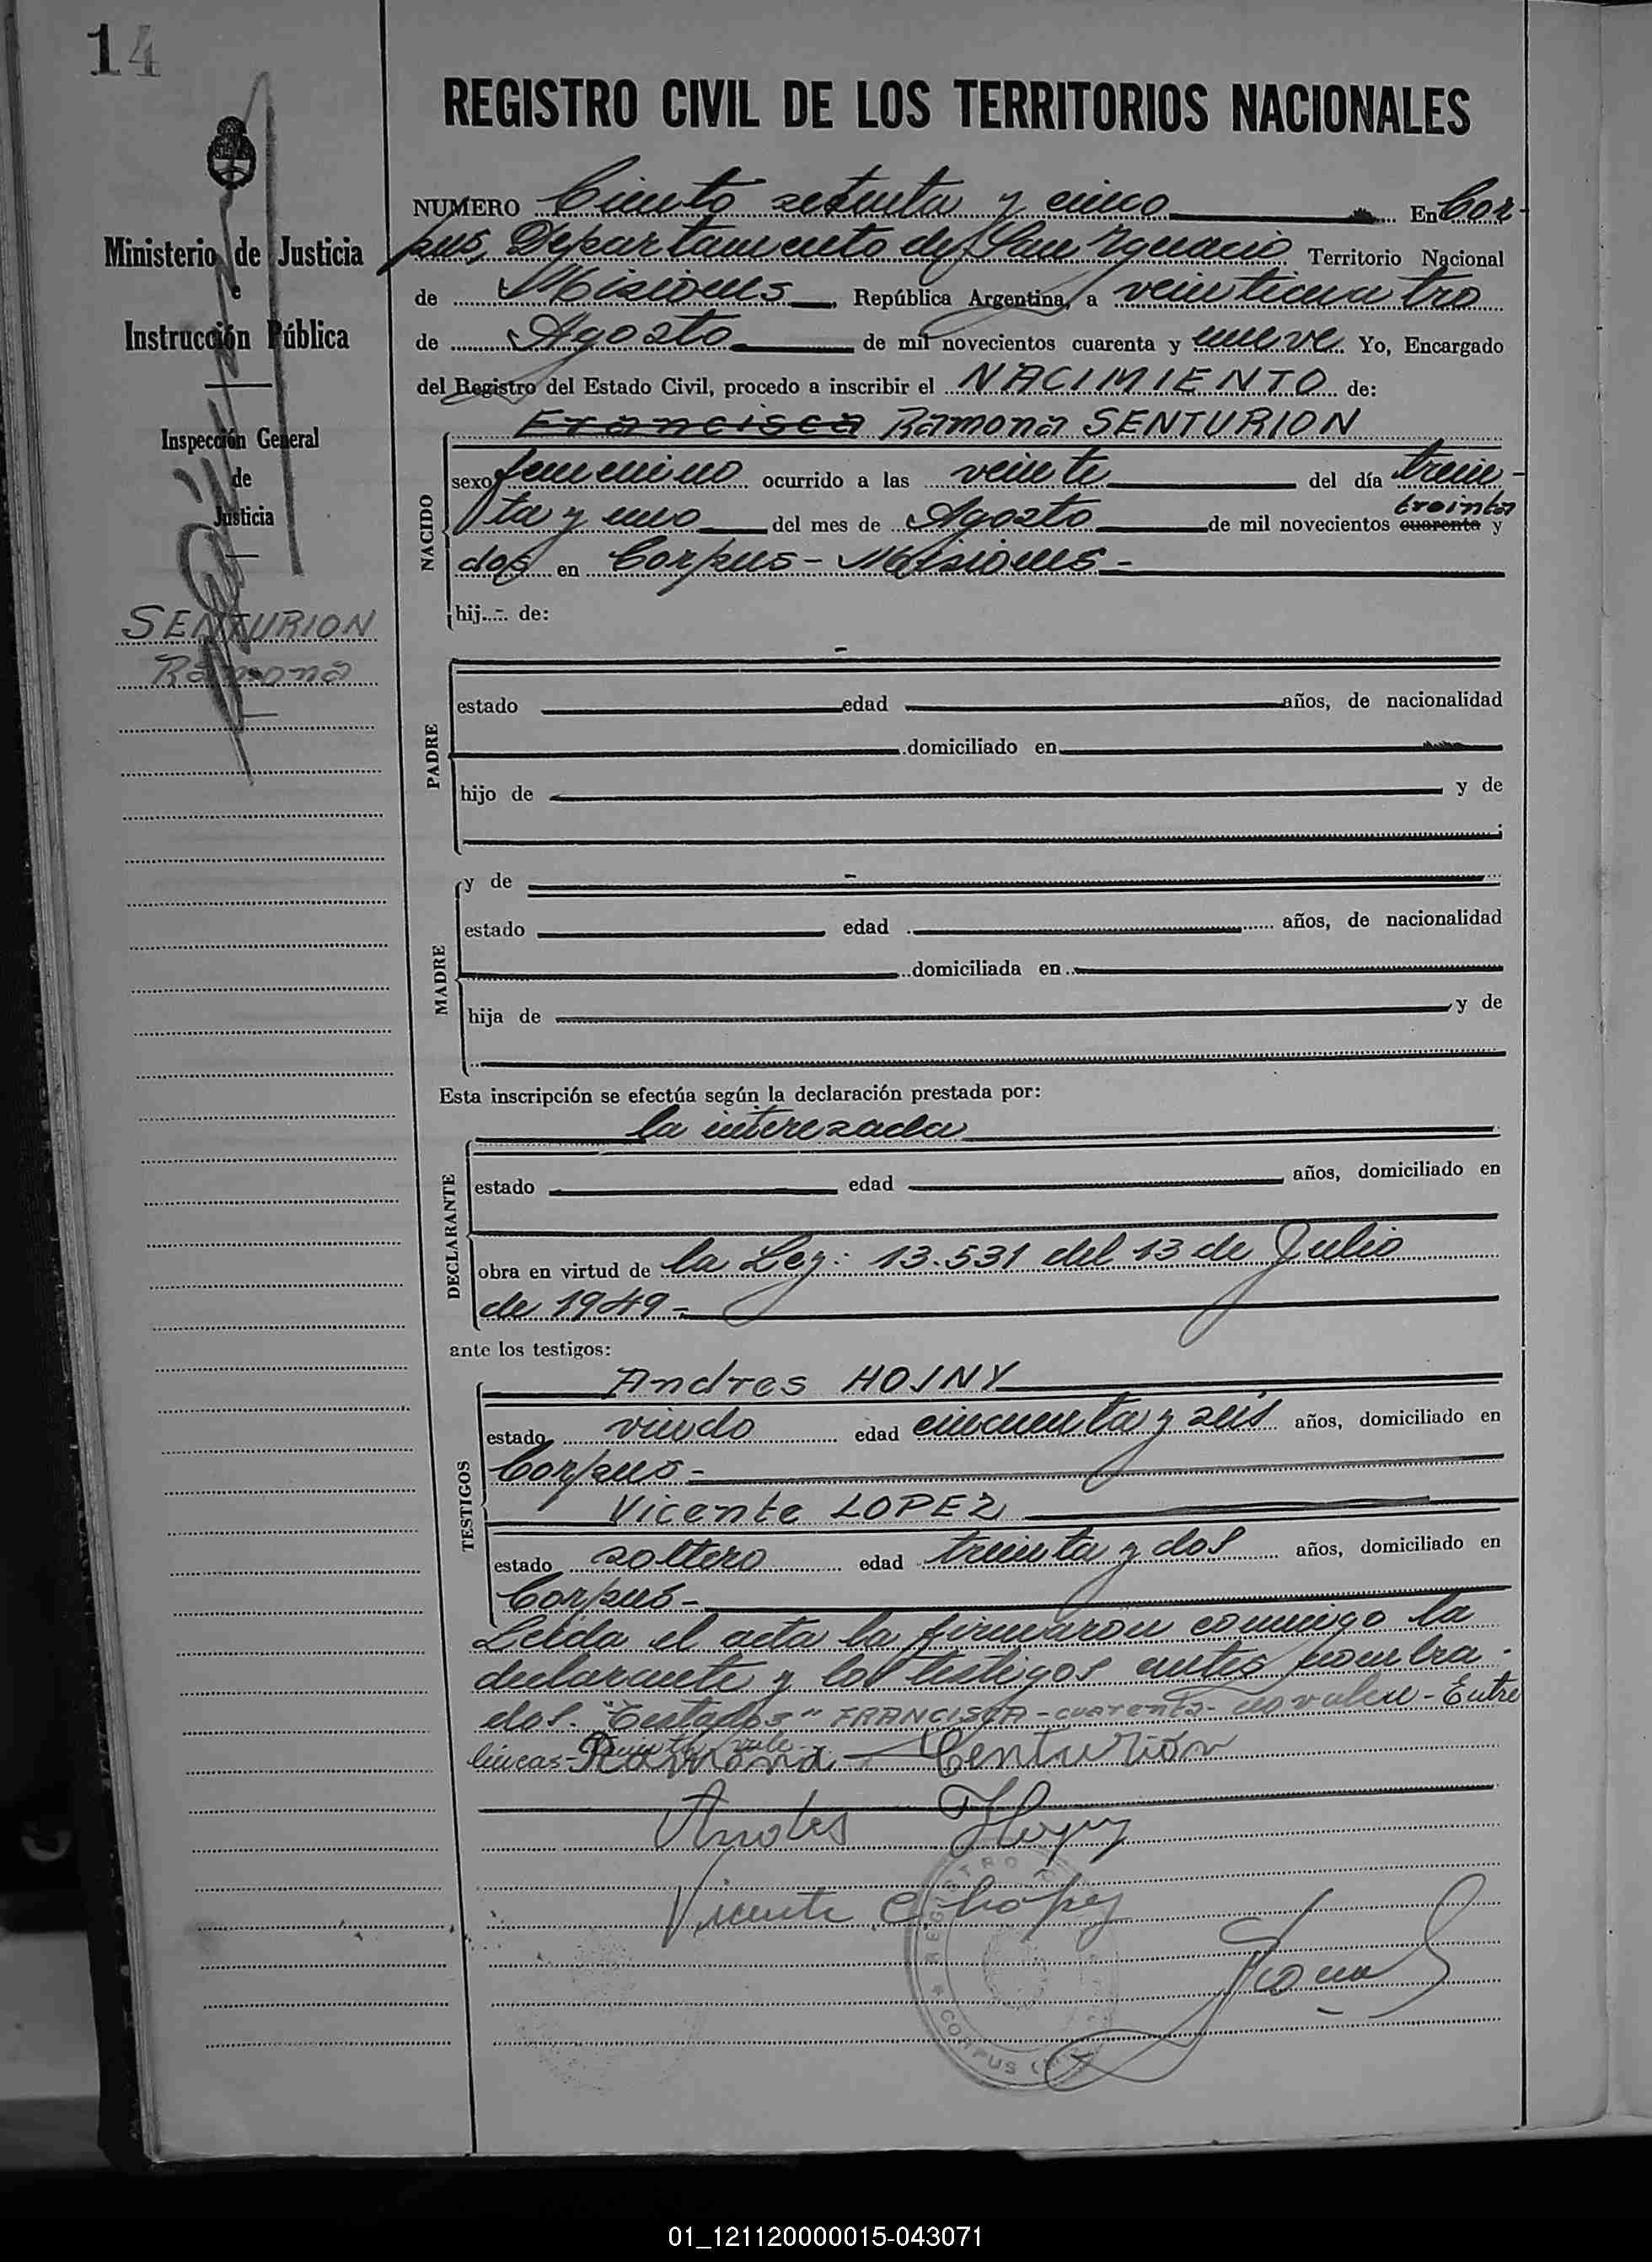 14
REGISTRO CIVIL DE LOS TERRITORIOS NACIONALES
Ministerio de Justicia
e
Instrucción Pública
Inspección General
de
Justicia
SENTURION
Ramona
NUMERO Ciento setenta y cinco En Cor-
pus, Departamento de San Ignacio Territorio Nacional
de Misiones, República Argentina, a veinticuatro
de Agosto de mil novecientos cuarenta y nueve Yo, Encargado
del Registro del Estado Civil, procedo a inscribir el NACIMIENTO de:
Francisca Ramona SENTURION
NACIDO
sexo femenino ocurrido a las veinte del día trein-
treinta
ta y uno del mes de Agosto de mil novecientos cuarenta y
dos en Corpus - Misiones -
hij.-. de:
PADRE
estado edad años, de nacionalidad
domiciliado en
hijo de y de
MADRE
y de
estado edad años, de nacionalidad
domiciliada en
hija de y de
Esta inscripción se efectúa según la declaración prestada por:
la interezada
DECLARANTE
estado edad años, domiciliado en
obra en virtud de la Ley: 13.531 del 13 de Julio
de 1949-
ante los testigos:
TESTIGOS
Andres HOJNY
estado viudo edad cincuenta y seis años, domiciliado en
Corpus-
Vicente LOPEZ
estado soltero edad treinta y dos años, domiciliado en
Corpus-
Leída el acta la firmaron conmigo la
declarante y los testigos antes nombra-
dos. "Testados" FRANCISCA - cuarenta - no valen - Entre
lineas - treinta vale
Ramona Centurión
Andres Hojny
Vicente C. Lopez
REGISTRO
CORPUS
01_121120000015-043071